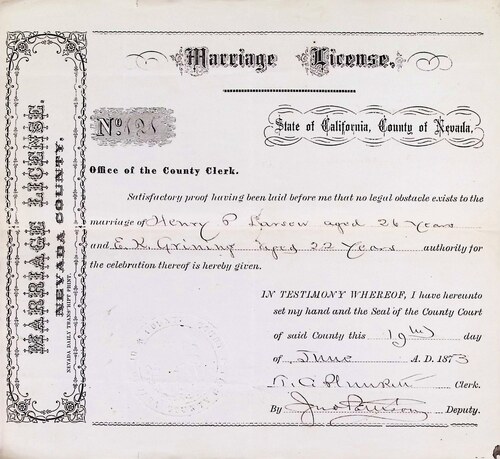 MARRIAGE LICENSE.
NEVADA COUNTY.
NEVADA DAILY TRANSCRIPT PRINT.
Marriage License.
No. 121
State of California, County of Nevada.
Office of the County Clerk.
Satisfactory proof having been laid before me that no legal obstacle exists to the
marriage of Henry P Larsen aged 26 Years
and E. K. Grining aged 22 Years authority for
the celebration thereof is hereby given.
IN TESTIMONY WHEREOF, I have hereunto
set my hand and the Seal of the County Court
of said County this 19th day
of June A. D. 1873
T. C. Plunkett Clerk.
By Jno Deputy.